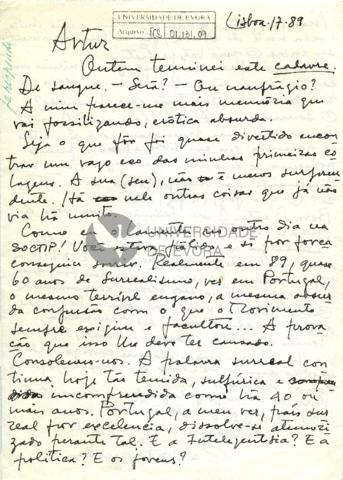 UNIVERSIDADE DE EVORA
Arquivo
Lisboa. 17-89
Já respondi
Artur
Ontem terminei este cadavre.
De sangue. – Será? – Ou naufrágio?
A mim parece-me mais memória que
vai fossilizando, erótica absurda.
Seja o que fôr foi quase divertido encon
trar um vago eco das minhas primeiras co
lagens. A sua (seu), não é menos surpreen
dente. Há nele outras coisas que já não
via há muito.
Como eu o lamentei no outro dia na
SOCTIP! Você estava pálido e só por força
conseguia sorrir. Realmente em 89, quase
60 anos de Surrealismo, ver em Portugal,
o mesmo terrível engano, a mesma absur
da confusão com o que o Movimento
sempre exigiu e facultou... A prova
ção que isso lhe deve ter causado.
Consolemo-nos. A palavra surreal con
tinua hoje tão temida, sulfúrica e
incompreendida como há 40 ou
mais anos. Portugal, a meu ver, país sur
real por excelencia, dissolve-se atemori
zado perante tal. E a Inteligentsia? E a
política? E os jovens?
UNIVERSIDADE
DE ÉVORA